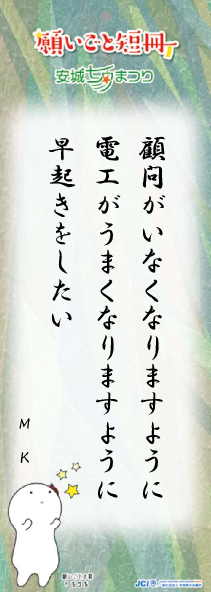 願いごと短冊
安城七夕まつり
顧問がいなくなりますように
電工がうまくなりますように
早起きをしたい
M K
JCI